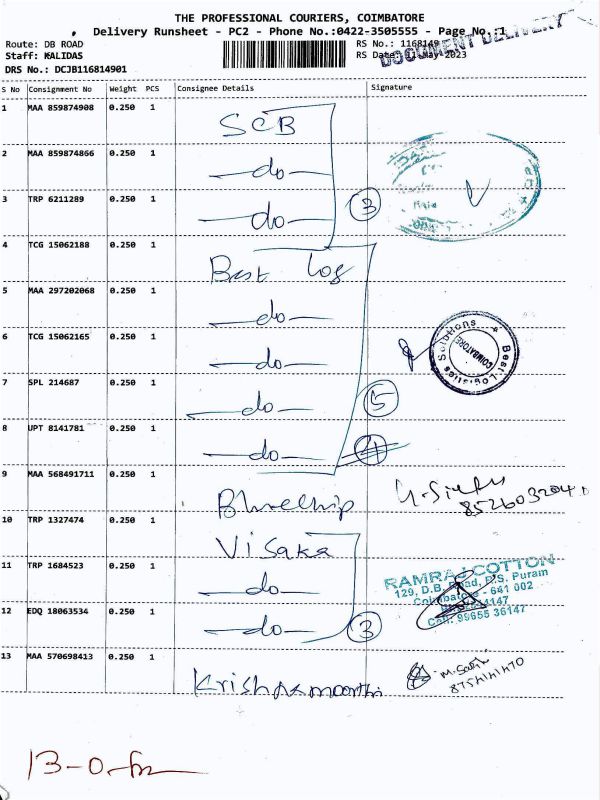 THE PROFESSIONAL COURIERS, COIMBATORE
Delivery Runsheet - PC2 - Phone No.:0422-3505555 - Page No.:1
DOCUMENT DELIVERY
Route: DB ROAD
Staff: KALIDAS
DRS No.: DCJB116814901
RS No.: 1168149
RS Date: 11 May 2023
S No Consignment No Weight PCS Consignee Details Signature
1 MAA 859874908 0.250 1 SCB
2 MAA 859874866 0.250 1 —do—
3 TRP 6211289 0.250 1 —do— 3
4 TCG 15062188 0.250 1 Best log
5 MAA 297202068 0.250 1 —do—
6 TCG 15062165 0.250 1 —do—
Best Logistics Solutions
COIMBATORE
7 SPL 214687 0.250 1 —do— 5
8 UPT 8141781 0.250 1 —do— 4
9 MAA 568491711 0.250 1 Bluechip
10 TRP 1327474 0.250 1 Visaka
11 TRP 1684523 0.250 1 —do—
RAMRAJ COTTON
129, D.B. Road, R.S. Puram
Coimbatore - 641 002
Cell: 99655 36147
12 EDQ 18063534 0.250 1 —do— 3
13 MAA 570698413 0.250 1 Krishnamoorthi
13-0-